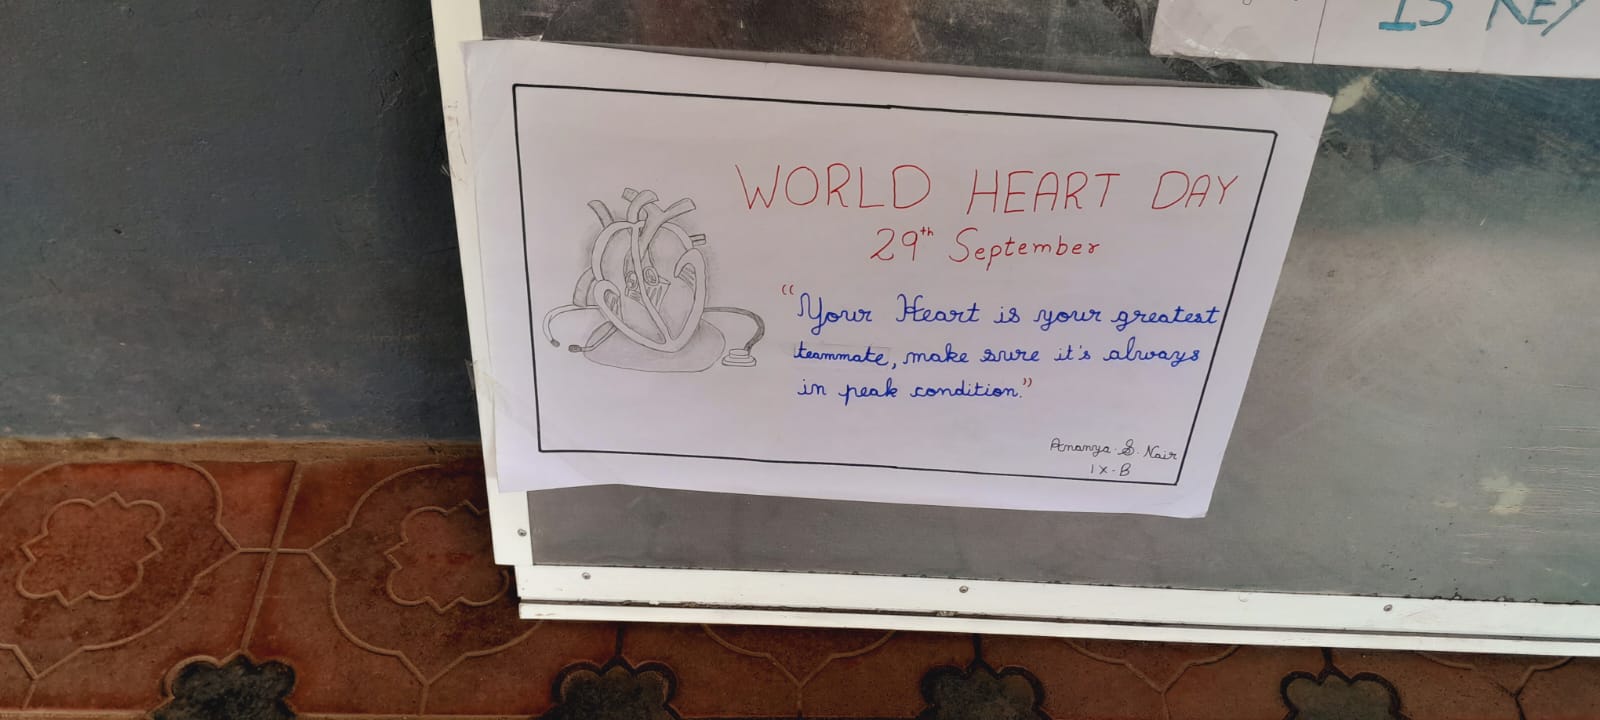 IS KEY
WORLD HEART DAY
29th September
“Your Heart is your greatest
teammate, make sure it's always
in peak condition.”
Ananya. S. Nair
IX-B